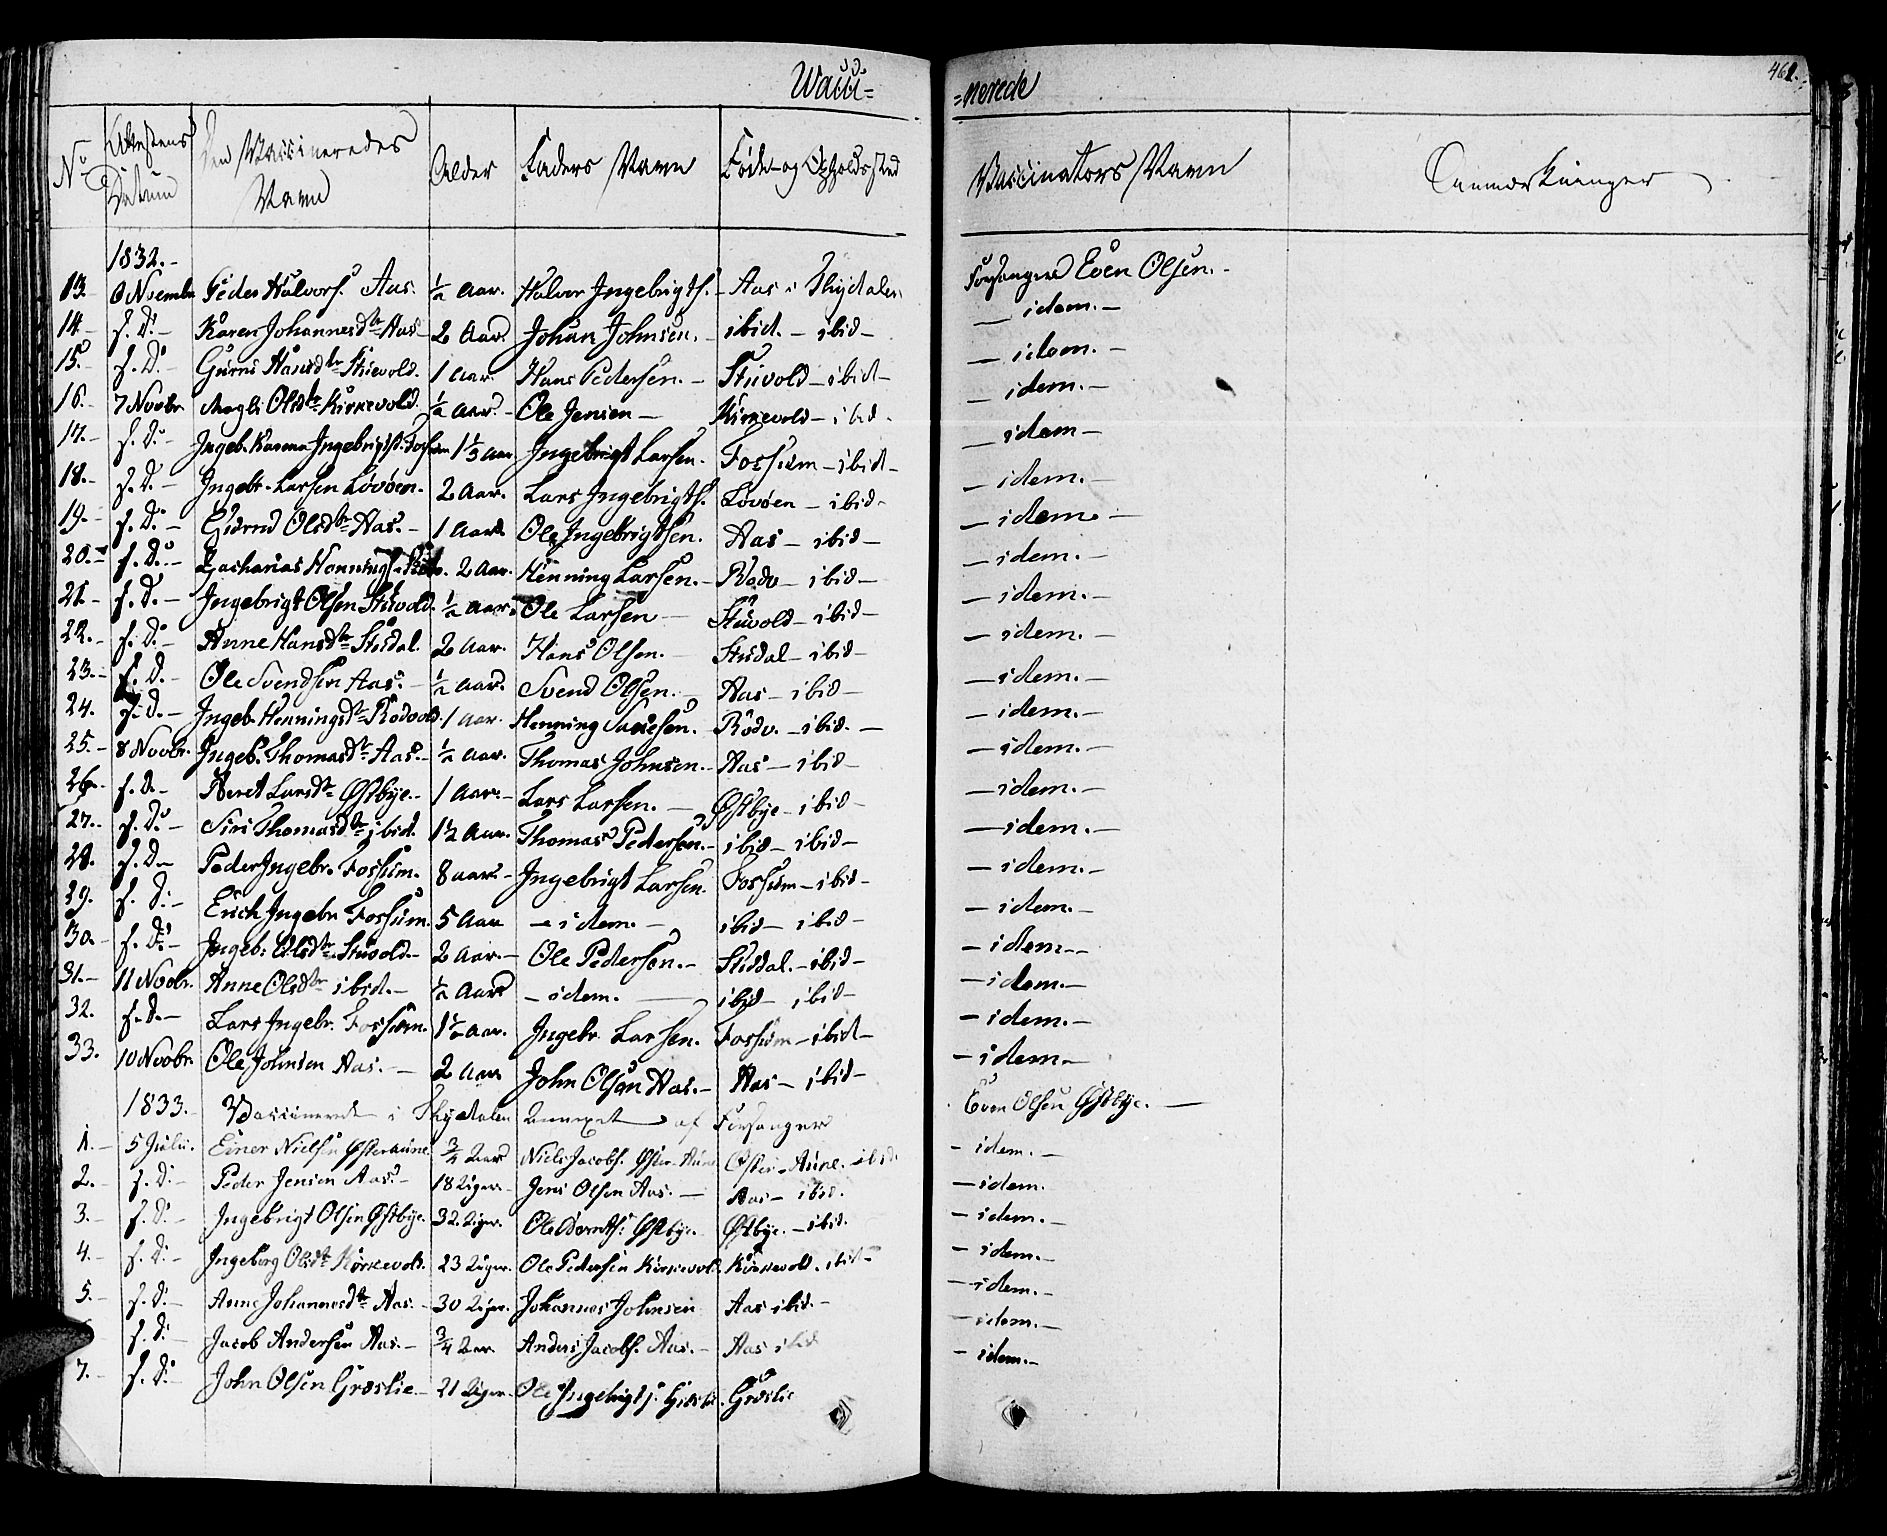 Wacci= =nerede 461.
No Attestens Datum Den Vaccineredes Navn Alder Faders Navn Føde- og Opholdssted Vaccinators Navn Anmærkninger
1832.- Forsanger Even Olsen.-
13. 6 Novembr Peder Halvors. Aas. ½ Aar. Halvor Ingebrigts. - Aas i Thydalen - idem.-
14.- s. D.- Karen Johannesdtr Aas- 2 Aar. Johan Johnsen. - ibid.- ibid- - idem.-
15.- s. D.- Guruï Hansdtr Stuevold. 1 Aar. Hans Pedersen.- Stuvold- ibid- - idem.-
16.- 7 Novbr Magli Olsdtr Kirkevold. ½ Aar.- Ole Jensen- Kirkevold- ibid. - idem-
17.- s. D.- Ingeb. Karena Ingebrigtsd. Fossum 1⅓ Aar Ingebrigt Larsen. Fossum- ibid- - idem.-
18.- s. D.- Ingebr. Larsen Løvøen. 2 Aar. Lars Ingebrigts. Løvøen- ibid- - idem.-
19.- s. D.- Gurru Olsdtr Aas.- 1 Aar. Ole Ingebrigtsen. Aas- ibid- - idem.-
20.- s. D.- Zacharias Hennings. 2 Aar. Henning Larsen.- Rodv- ibid- - idem.-
21.- s. D.- Ingebrigt Olsen Stuvold. ½ Aar. Ole Larsen- Stuvold- ibid- - idem.-
22.- s. D.- Anne Hansdtr Stuedal. 2 Aar. Hans Olsen. Stuedal- ibid- - idem.-
23.- s. D.- Ole Svendsen Aas.- ½ Aar. Svend Olsen.- Aas- ibid- - idem.-
24. s. D.- Ingeb. Henningsdtr Rodvold. 1 Aar. Henning Rodv.- ibid.- - idem.-
25.- 8 Novbr. Ingeb. Thomasdtr Aas.- ½ Aar. Thomas Johnsen.- Aas- ibid- - idem.-
26.- s. D.- Beret Larsdtr Østbye.- 1 Aar.- Lars Larsen.- Østbye- ibid- - idem.-
27.- s. D.- Siri Thomasdtr ibid. 1½ Aar. Thomas Pedersen.- ibid- ibid- - idem.-
28. s. D.- Peder Ingebr. Fossum. 8 Aar.- Ingebrigt Larsen. Fossum- ibid- - idem.-
29. s. D.- Erich Ingebr. Fossum. 5 Aar - idem.- ibid- ibid- - idem.-
30.- s. D.- Ingeb: Olsdtr Stuvold.- 2 Aar.- Ole Pedersen.- Stuedal.- ibid- - idem.-
31.- 11 Novbr. Anne Olsdtr ibid.- ½ Aar - idem.- ibid- ibid- - idem.-
32. s. D.- Lars Ingebr. Fossum. 1½ Aar. Ingebr. Larsen. Fossum- ibid- - idem.-
33. 10 Novbr. Ole Johnsen Aas.- 2 Aar John Olsen Aas.- Aas- ibid- - idem.-
1833.- Vaccinerede i Thydalen Annexet af Forsanger Even Olsen Østbye.-
1.- 5 Julii. Einer Nielsen Østeraune ¾ Aar Niels Jacobs. Øster-Aune Øster-Aune. ibid. - idem.-
2.- s. D.- Peder Jensen Aas.- 18 Uger.- Jens Olsen Aas.- Aas- ibid. - idem.
3.- s. D.- Ingebrigt Olsen Østbye. 32 Uger. Ole Berndts. Østbye.- Østbye.- ibid. - idem.-
4.- s. D.- Ingeborg Olsdtr Kirkevold. 23 Uger. Ole Pedersen Kirkevold. Kirkevold. ibid- - idem.-
5.- s. D.- Anne Johannesdtr Aas.- 30 Uger. Johannes Johnsen Aas ibid.- - idem.-
s. D.- Jacob Andersen Aas.- ¾ Aar Anders Jacobs. Aas.- Aas ibid - idem.-
7.- s. D.- John Olsen Græslie- 21 Uger. Ole Ingebrigts. Græsl. Græslie - idem.-